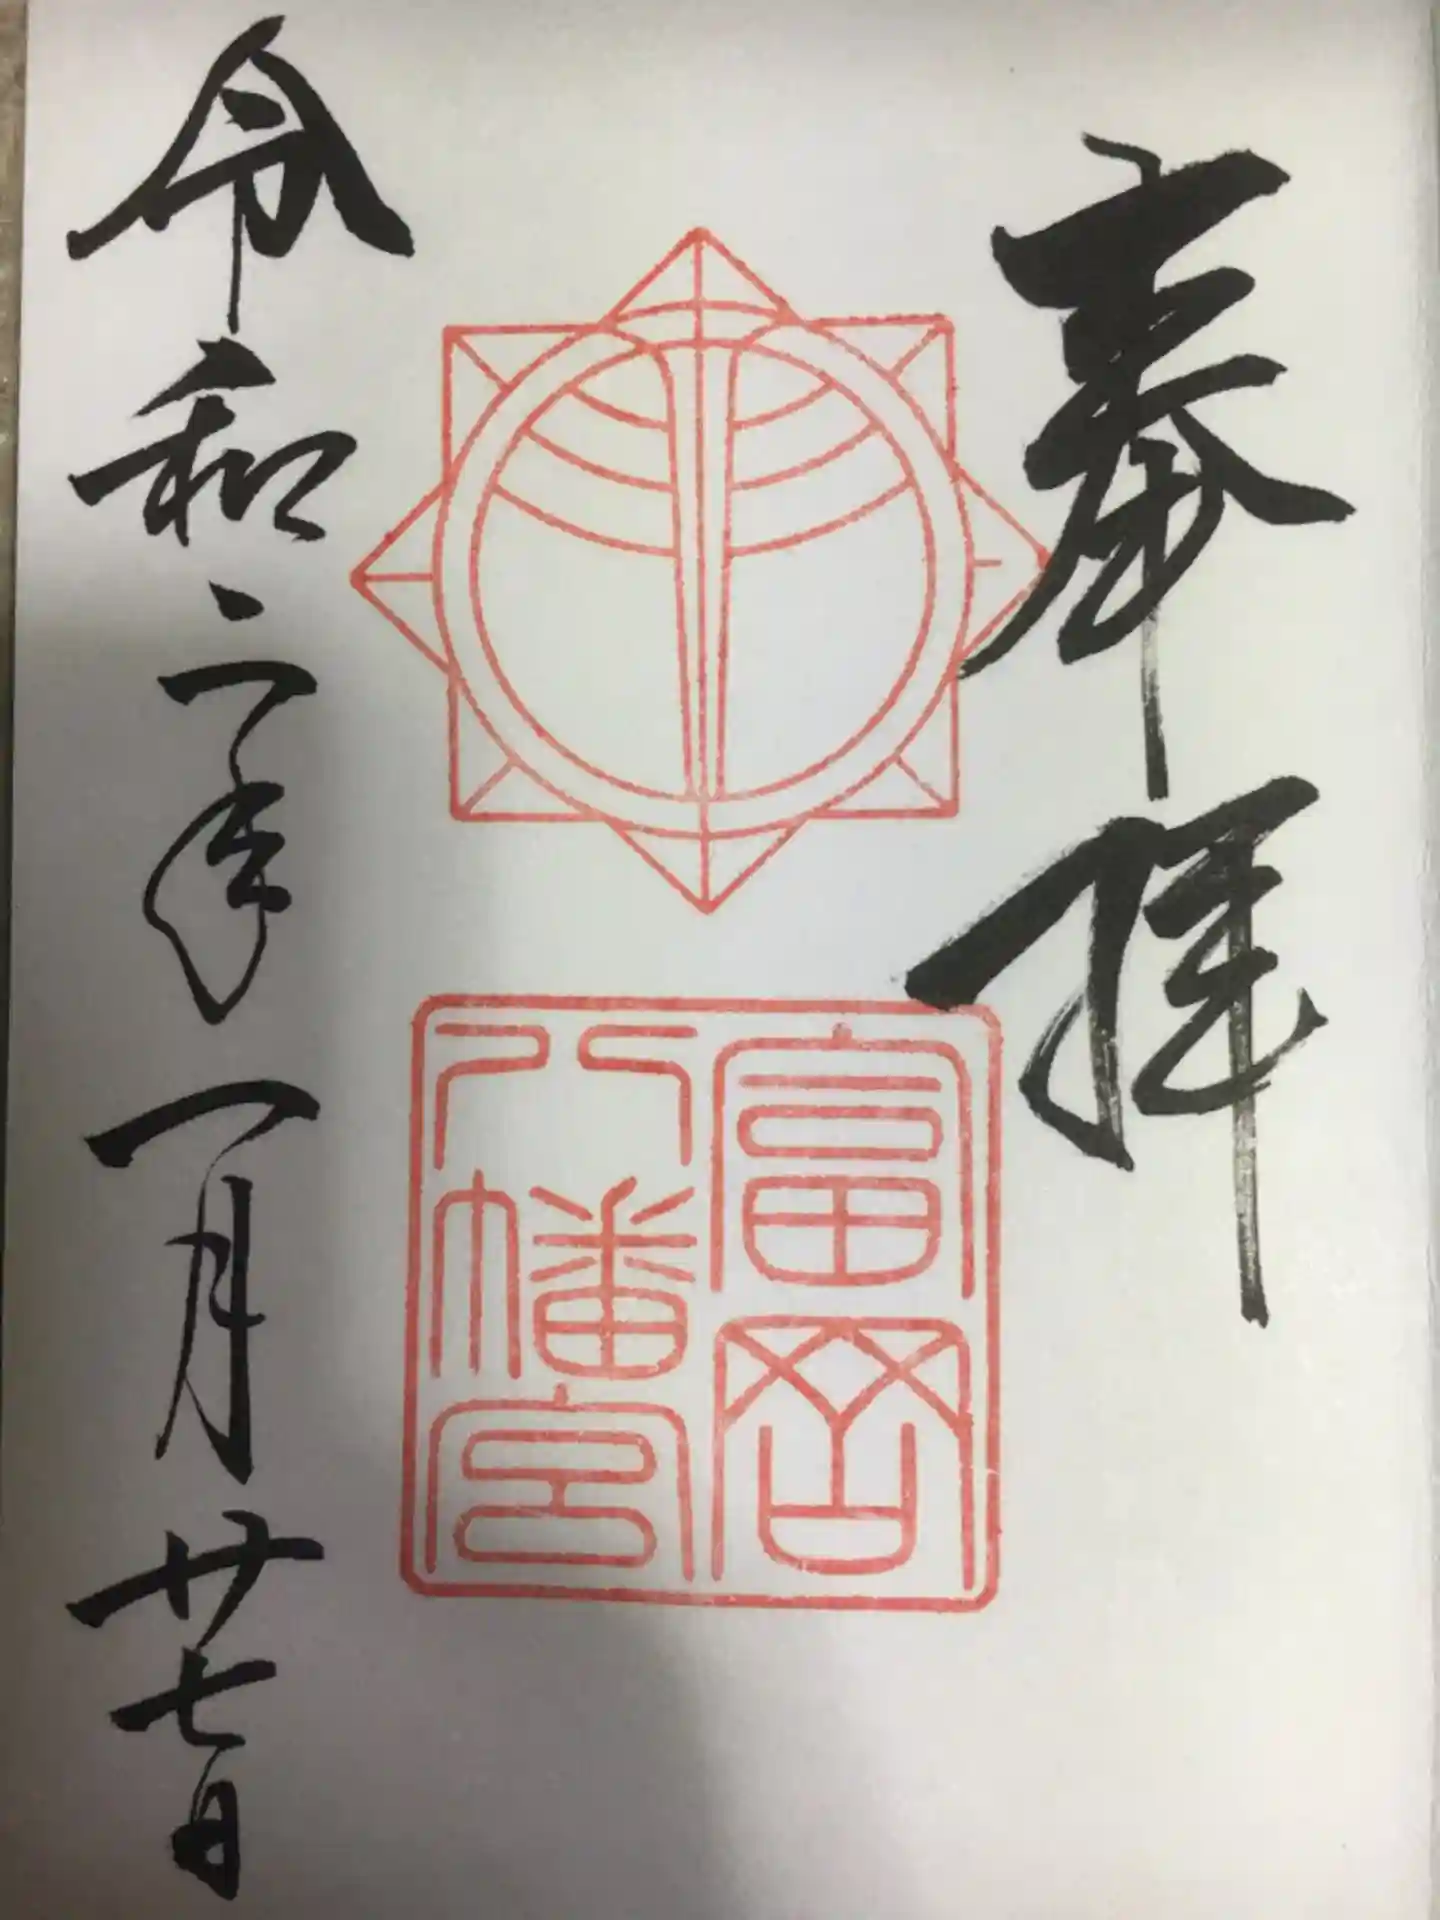 奉拝
富岡
八幡宮
令和二年一月廿七日